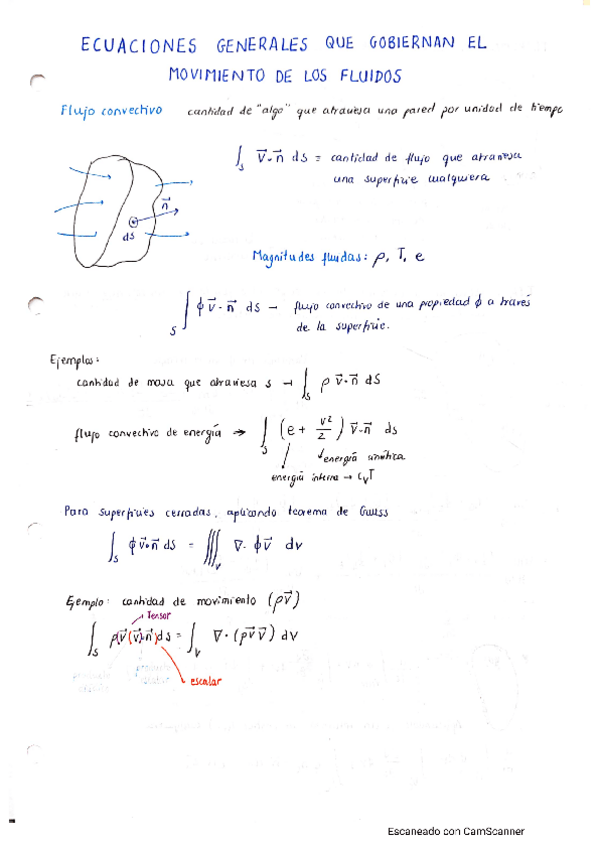 ECUACIONES GENERALES QUE GOBIERNAN EL
MOVIMIENTO DE LOS FLUIDOS
Flujo convectivo cantidad de "algo" que atraviesa una pared por unidad de tiempo
∫_S v⃗·n⃗ ds = cantidad de flujo que atraviesa
una superficie cualquiera
n⃗
ds
Magnitudes fluidas: ρ, T, e
∫_S ϕ v⃗·n⃗ ds → flujo convectivo de una propiedad ϕ a través
de la superficie.
Ejemplos:
cantidad de masa que atraviesa s → ∫_S ρ v⃗·n⃗ dS
flujo convectivo de energía → ∫_S (e + v²/2) v⃗·n⃗ ds
energía cinética
energía interna → CvT
Para superficies cerradas, aplicando teorema de Gauss
∫_S ϕ v⃗·n⃗ ds = ∭_V ∇·ϕ v⃗ dv
Ejemplo: cantidad de movimiento (ρv⃗)
Tensor
∫_S ρv⃗(v⃗·n⃗)ds = ∫_V ∇·(ρv⃗v⃗) dv
escalar
Escaneado con CamScanner